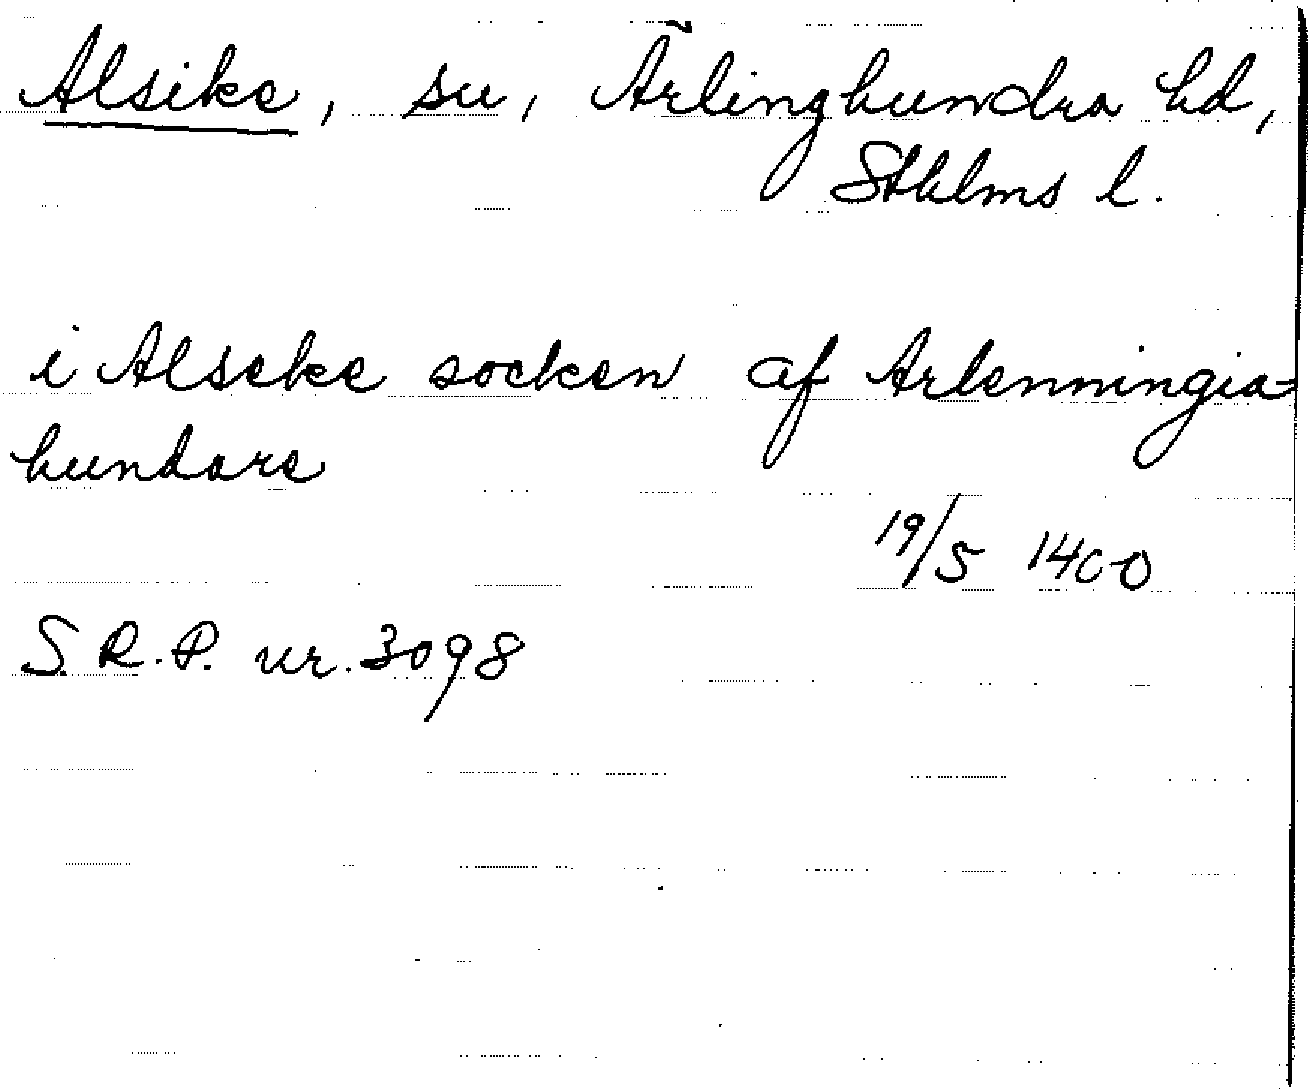 Alsike, sn, Ärlinghundra hd,
Sthlms l.
i Alseke socken af Arlenningia-
hundare
19/5 1400
S.R.P. nr. 3098